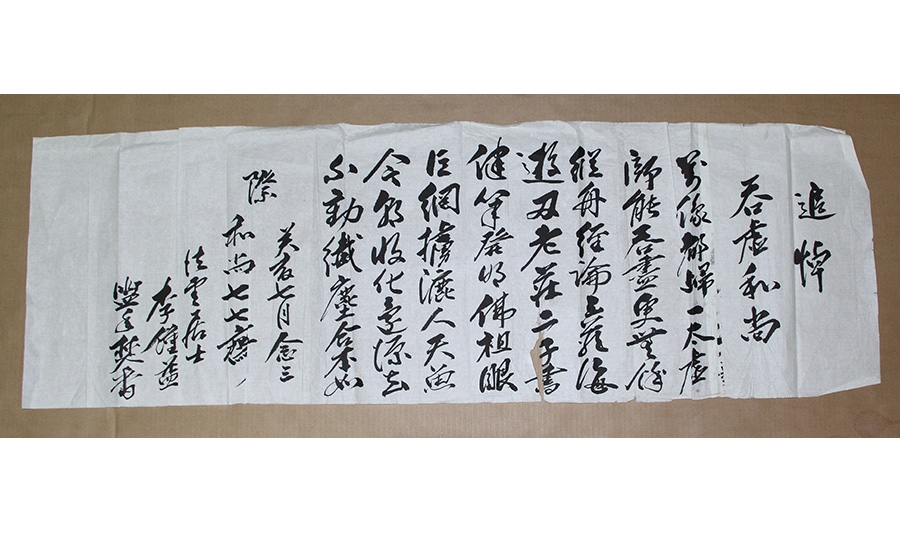 追悼
吞虛和尚
萬像都歸一太虛
師能吞盡更無餘
縱舟經論三藏海
遊刃老莊二子書
健筆發明佛祖眼
巨網漉人天魚
今朝收化還源去
不動纖塵合本如
癸酉七月念三
際
和尚七七齋
法雲居士
李鍾益
盥手焚香